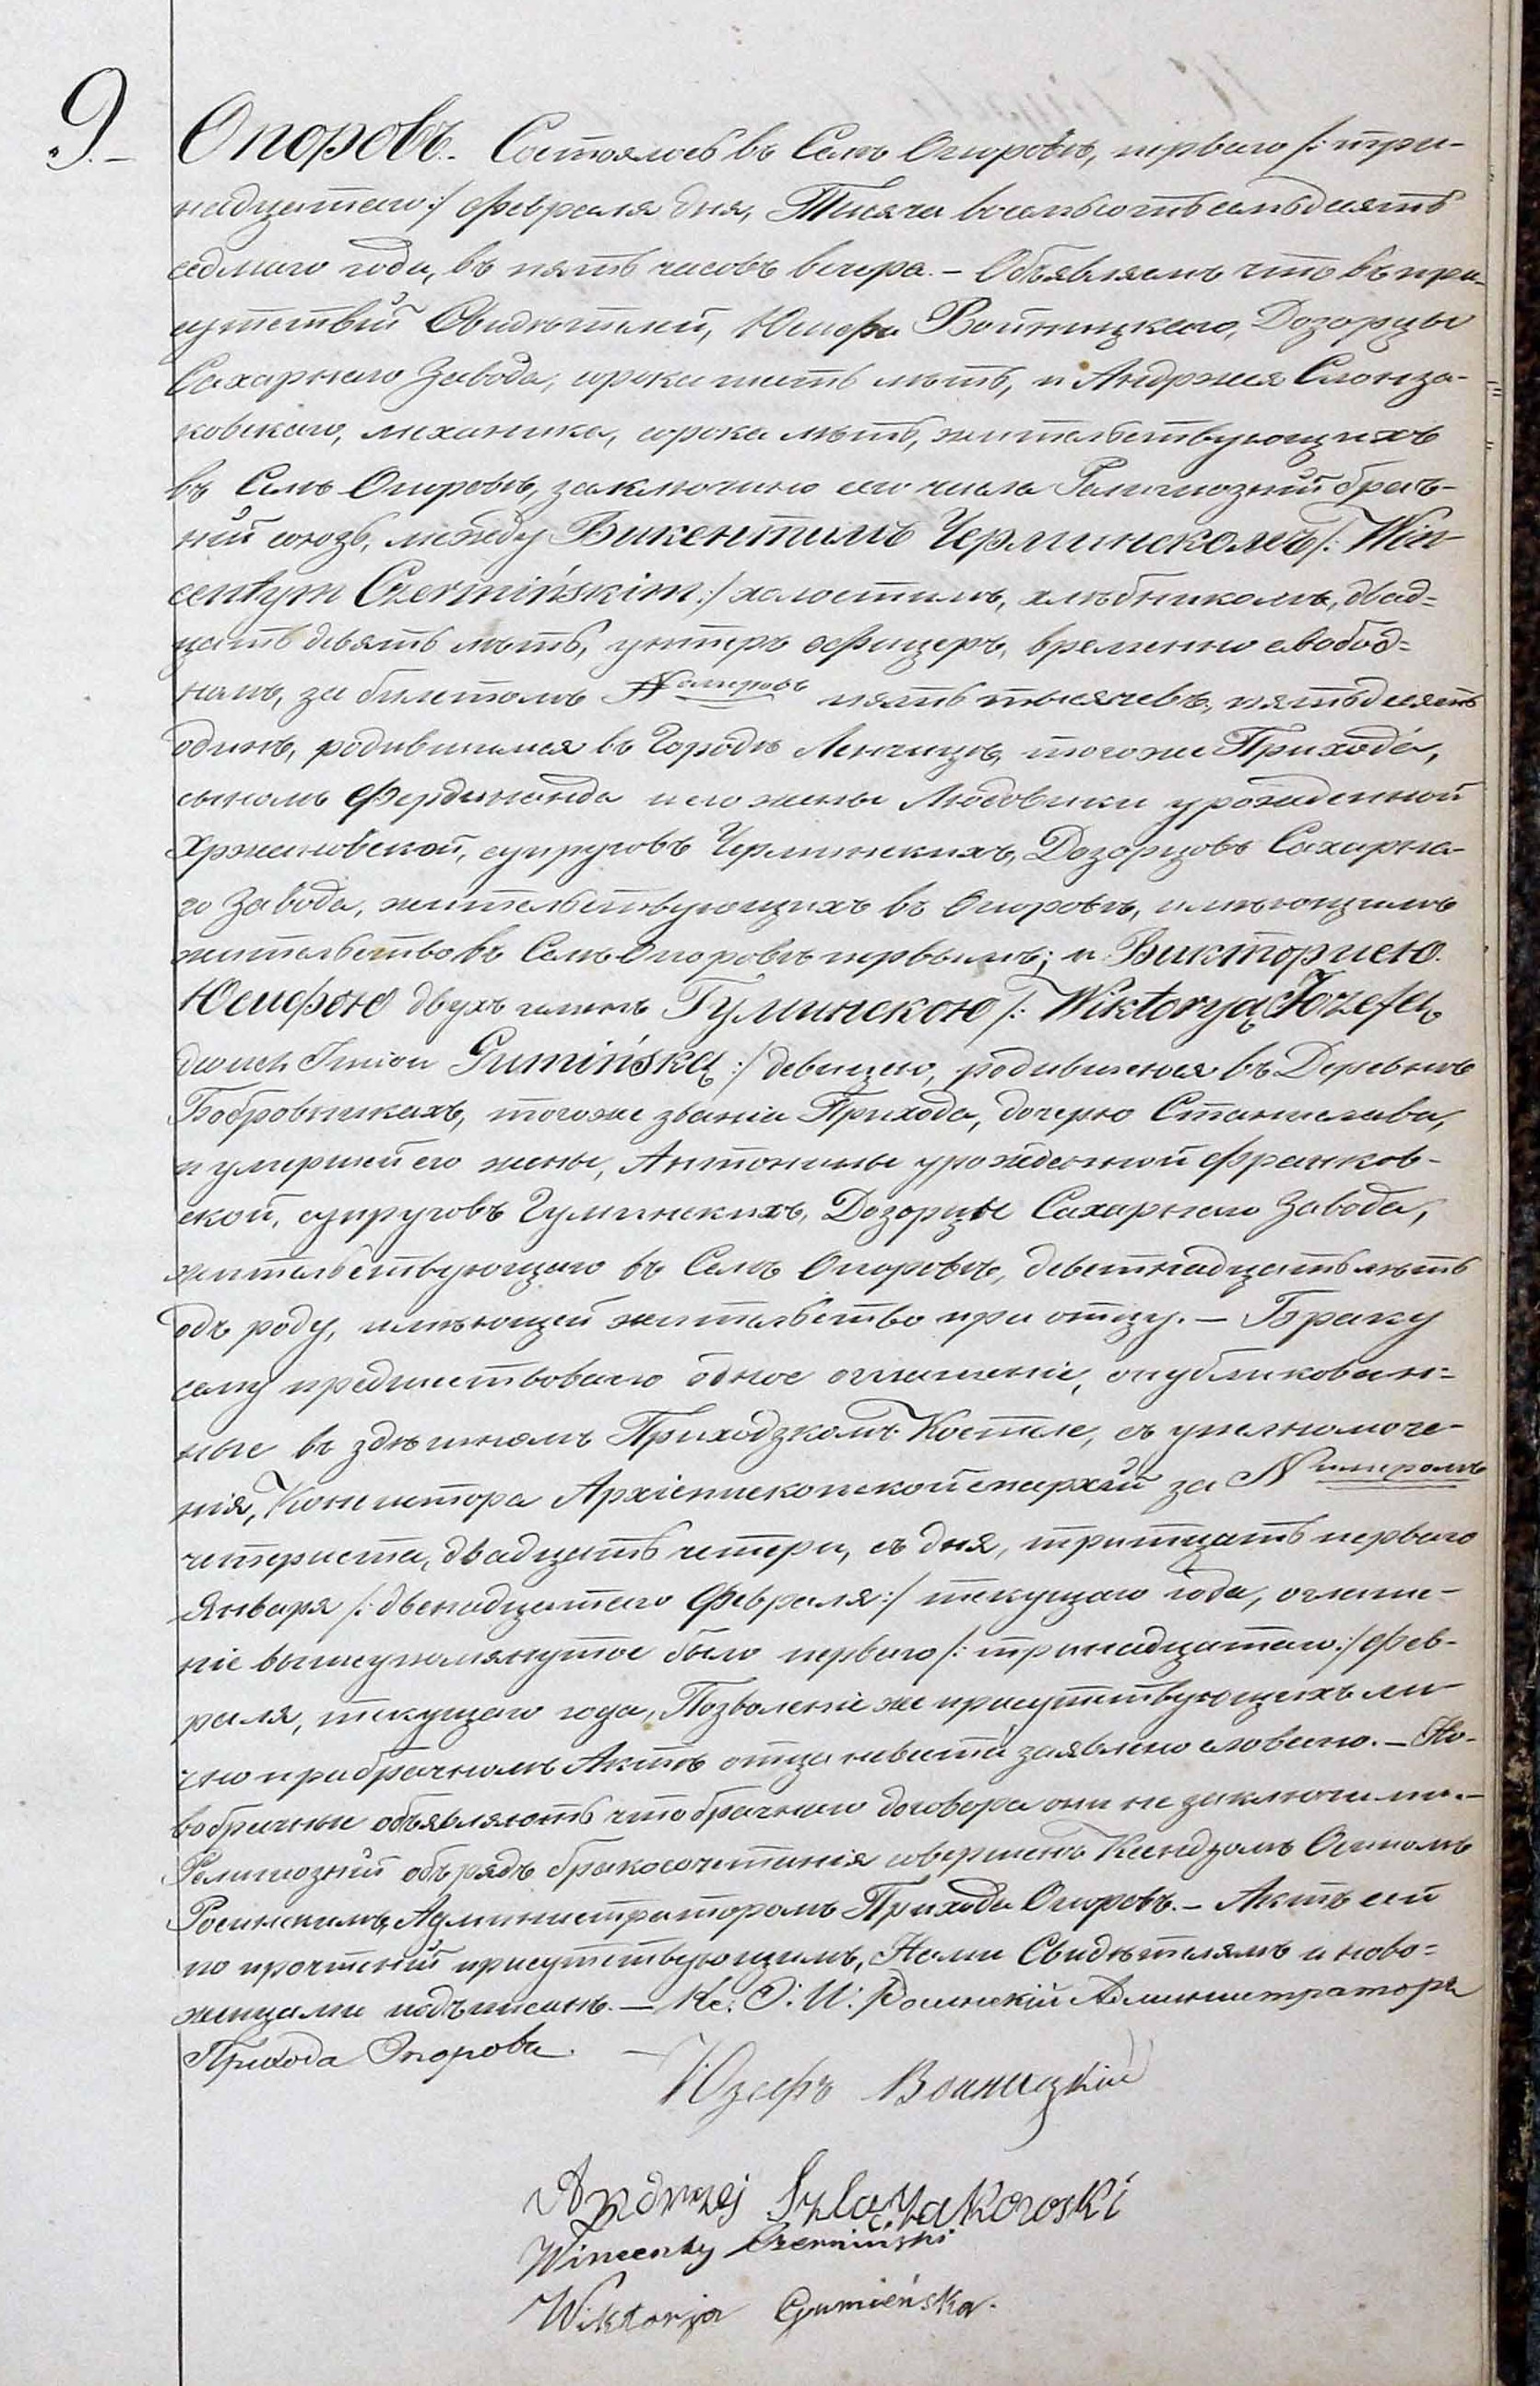 9.
Опоровъ. Состоялось въ Селѣ Опоровѣ, перваго /: три-
надцатаго :/ Февраля дня, Тысяча восемьсотъ семьдесятъ
седмаго года, въ пять часовъ вечера. – Объявляемъ что въ при-
сутствіи Свидѣтелей, Юсифа Войницкаго, Дозорцы
Сахарнаго Завода, сорока шесть лѣтъ, и Андржея Слонза-
ковскаго, механика, сорока лѣтъ, жительствующихъ
въ Селѣ Опоровѣ, заключено сего числа Религіозный брач-
ній союзъ, между Викентимъ Черминскомъ /: Win-
centym Czermińskim :/ холостымъ, хлѣбникомъ, двад=
цать девять лѣтъ, унтеръ офицеръ, временно свобод=
намъ, за билетомъ Nомеровъ пять тысячевъ, пятьдесятъ
одинъ, родившимся въ Городѣ Ленчицѣ, тогоже Прихода,
сыномъ Фердинанда и его жены Людовики урожденной
Хржановской, супруговъ Черминскихъ, Дозорцовъ Сахарна-
го Завода, жительствующихъ въ Опоровѣ, имѣющимъ
жительство въ Селѣ Опоровѣ первымъ; и Викторіею
Юсифою двухъ именъ Гуминскою /: Wiktoryą Józefą
dwuch Imion Gumińską :/ девицею, родившеюся въ Деревнѣ
Бобровникахъ, тогоже званія Прихода, дочерю Станислава,
и умершей его жены, Антонины урожденной Франков-
ской, супруговъ Гуминскихъ, Дозорцы Сахарнаго Завода,
жительствующаго въ Селѣ Опоровѣ, девятнадцать лѣтъ
одъ роду, имѣющей жительство при отцу. – Браку
сему предшествовало одное оглашеніе, опубликован=
ные въ здѣшнемъ Приходзкомъ Костеле, съ уполномоче-
нія, Консистора Архіепископской епархіи за Nумеромъ
четыриста, двадцать четери, съ дня, тритцать перваго
Января /: двенадцатаго Февраля :/ текущаго года, оглаше-
ніе вышеупомянутое было перваго /: тринадцатаго :/ Фев-
раля, текущаго года, Позволеніе же присутствующихъ ли-
чно при брачномъ Актѣ отца невесты заявлено словесно. – Но-
вобрачные объявляютъ что брачнаго договора они не заключили. –
Религіозный обърядъ бракосочетанія совершенъ Ксендзомъ
Росинскимъ, Администраторомъ Прихода Опоровъ. – Актъ сей
по прочтеніи присутствующимъ, Нами Свидѣтелямъ и ново=
женцами подъписанъ. – Кс: О: И: Росинскій Администраторъ
Прихода Опоровъ. –
Юзефъ Войницкій
Andrzej Szlązakowski
Wincenty Czermiński
Wiktorja Gumieńska.